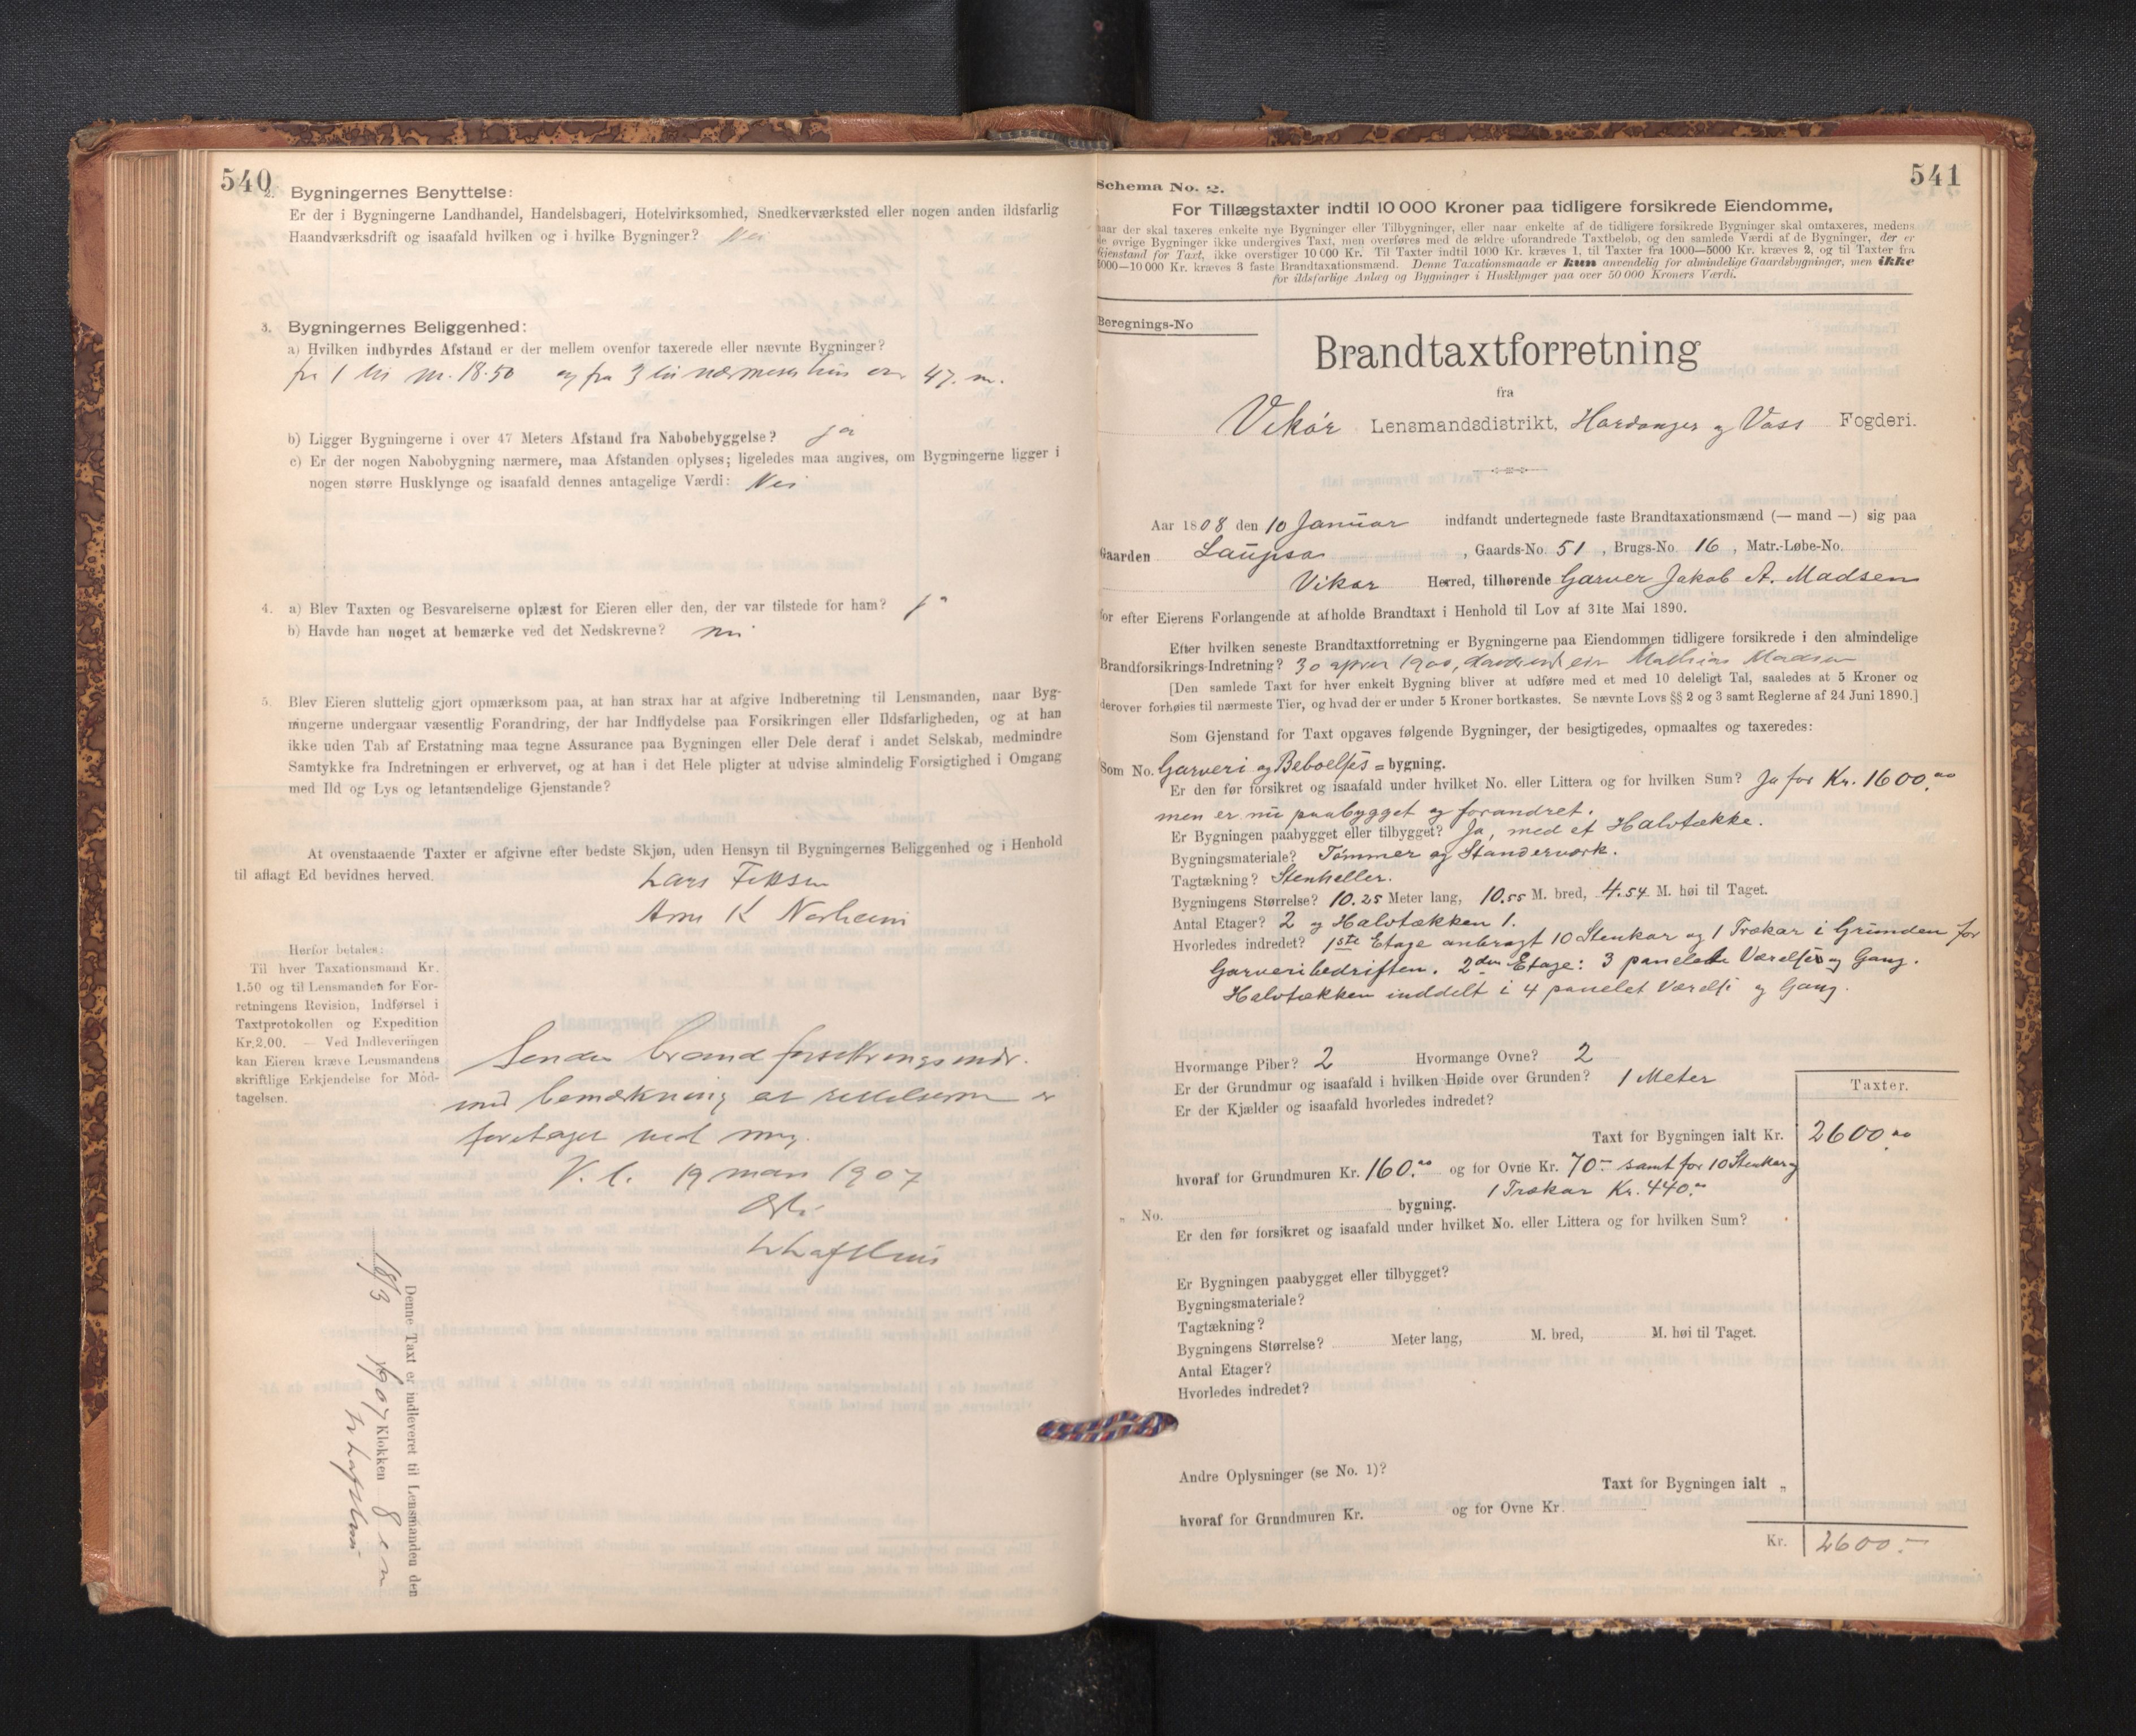 540
2. Bygningernes Benyttelse:
Er der i Bygningerne Landhandel, Handelsbageri, Hotelvirksomhed, Snedkerværksted eller nogen anden ildsfarlig
Haandværksdrift og isaafald hvilken og i hvilke Bygninger? Nei
3. Bygningernes Beliggenhed:
a) Hvilken indbyrdes Afstand er der mellem ovenfor taxerede eller nævnte Bygninger?
fra 1 til nr. 18.50 og fra 3 til nærmeste hus over 47. m.
b) Ligger Bygningerne i over 47 Meters Afstand fra Nabobebyggelse? ja
c) Er der nogen Nabobygning nærmere, maa Afstanden oplyses; ligeledes maa angives, om Bygningerne ligger i
nogen større Husklynge og isaafald dennes antagelige Værdi: Nei
4. a) Blev Taxten og Besvarelserne oplæst for Eieren eller den, der var tilstede for ham? ja
b) Havde han noget at bemærke ved det Nedskrevne? nei
5. Blev Eieren sluttelig gjort opmærksom paa, at han strax har at afgive Indberetning til Lensmanden, naar Byg-
ningerne undergaar væsentlig Forandring, der har Indflydelse paa Forsikringen eller Ildsfarligheden, og at han
ikke uden Tab af Erstatning maa tegne Assurance paa Bygningen eller Dele deraf i andet Selskab, medmindre
Samtykke fra Indretningen er erhvervet, og at han i det Hele pligter at udvise almindelig Forsigtighed i Omgang
med Ild og Lys og letantændelige Gjenstande?
At ovenstaaende Taxter er afgivne efter bedste Skjøn, uden Hensyn til Bygningernes Beliggenhed og i Henhold
til aflagt Ed bevidnes herved.
Lars Feksen
Arne K Norheim
Herfor betales:
Til hver Taxationsmand Kr.
1.50 og til Lensmanden for For-
retningens Revision, Indførsel i
Taxtprotokollen og Expedition
Kr. 2.00. — Ved Indleveringen
kan Eieren kræve Lensmandens
skriftlige Erkjendelse for Mod-
tagelsen.
Sendes brandforsikringsindr.
med bemærkning at rettelserne er
foretaget ved mig.
V. l. 19 mars 1907
Denne Taxt er indleveret til Lensmanden den
18/3 1907 Klokken 8 em
541
Schema No. 2.
For Tillægstaxter indtil 10 000 Kroner paa tidligere forsikrede Eiendomme,
naar der skal taxeres enkelte nye Bygninger eller Tilbygninger, eller naar enkelte af de tidligere forsikrede Bygninger skal omtaxeres, medens
de øvrige Bygninger ikke undergives Taxt, men overføres med de ældre uforandrede Taxtbeløb, og den samlede Værdi af de Bygninger, der er
Gjenstand for Taxt, ikke overstiger 10 000 Kr. Til Taxter indtil 1000 Kr. kræves 1, til Taxter fra 1000—5000 Kr. kræves 2, og til Taxter fra
5000—10 000 Kr. kræves 3 faste Brandtaxationsmænd. Denne Taxationsmaade er kun anvendelig for almindelige Gaardsbygninger, men ikke
for ildsfarlige Anlæg og Bygninger i Husklynger paa over 50 000 Kroners Værdi.
Beregnings-No
Brandtaxtforretning
fra
Vikør Lensmandsdistrikt, Hardanger og Voss Fogderi.
Aar 1808 den 10 Januar indfandt undertegnede faste Brandtaxationsmænd (— mand —) sig paa
Gaarden Laupsa, Gaards-No. 51, Brugs-No. 16, Matr.-Løbe-No.
Vikør Herred, tilhørende Garver Jakob A. Madsen
for efter Eierens Forlangende at afholde Brandtaxt i Henhold til Lov af 31te Mai 1890.
Efter hvilken seneste Brandtaxtforretning er Bygningerne paa Eiendommen tidligere forsikrede i den almindelige
Brandforsikrings-Indretning? 30 april 1900, Mathias Madsen
[Den samlede Taxt for hver enkelt Bygning bliver at udføre med et med 10 deleligt Tal, saaledes at 5 Kroner og
derover forhøies til nærmeste Tier, og hvad der er under 5 Kroner bortkastes. Se nævnte Lovs §§ 2 og 3 samt Reglerne af 24 Juni 1890.]
Som Gjenstand for Taxt opgaves følgende Bygninger, der besigtigedes, opmaaltes og taxeredes:
Som No. Garveri og Beboelses = bygning.
Er den før forsikret og isaafald under hvilket No. eller Littera og for hvilken Sum? Ja for Kr. 1600.00
men er nu paabygget og forandret.
Er Bygningen paabygget eller tilbygget? Ja, med et Halvtække.
Bygningsmateriale? Tømmer og Standerværk.
Tagtækning? Stenheller.
Bygningens Størrelse? 10.25 Meter lang, 10.55 M. bred, 4.54 M. høi til Taget.
Antal Etager? 2 og Halvtækken 1.
Hvorledes indredet? 1ste Etage anbragt 10 Stenkar og 1 Trækar i Grunden for
Garveribedriften. 2den Etage: 3 panelede Værelser og Gang.
Halvtækken inddelt i 4 panelet Værelse og Gang.
Hvormange Piber? 2 Hvormange Ovne? 2
Er der Grundmur og isaafald i hvilken Høide over Grunden? 1 Meter
Er der Kjælder og isaafald hvorledes indredet?
Taxter.
Taxt for Bygningen ialt Kr. 2600.00
hvoraf for Grundmuren Kr. 160.00 og for Ovne Kr. 70.- samt for 10 Stenkar og
1 Trækar Kr. 440.-
„ No. bygning.
Er den før forsikret og isaafald under hvilket No. eller Littera og for hvilken Sum?
Er Bygningen paabygget eller tilbygget?
Bygningsmateriale?
Tagtækning?
Bygningens Størrelse? Meter lang, M. bred, M. høi til Taget.
Antal Etager?
Hvorledes indredet?
Andre Oplysninger (se No. 1)?
Taxt for Bygningen ialt „
hvoraf for Grundmuren Kr. og for Ovne Kr.
Kr. 2600.-